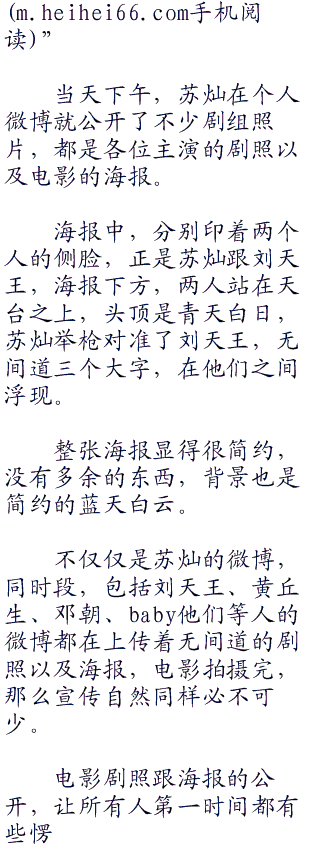 (m.heihei66.com手机阅
读)”
当天下午，苏灿在个人
微博就公开了不少剧组照
片，都是各位主演的剧照以
及电影的海报。
海报中，分别印着两个
人的侧脸，正是苏灿跟刘天
王，海报下方，两人站在天
台之上，头顶是青天白日，
苏灿举枪对准了刘天王，无
间道三个大字，在他们之间
浮现。
整张海报显得很简约，
没有多余的东西，背景也是
简约的蓝天白云。
不仅仅是苏灿的微博，
同时段，包括刘天王、黄丘
生、邓朝、baby他们等人的
微博都在上传着无间道的剧
照以及海报，电影拍摄完，
那么宣传自然同样必不可
少。
电影剧照跟海报的公
开，让所有人第一时间都有
些愣